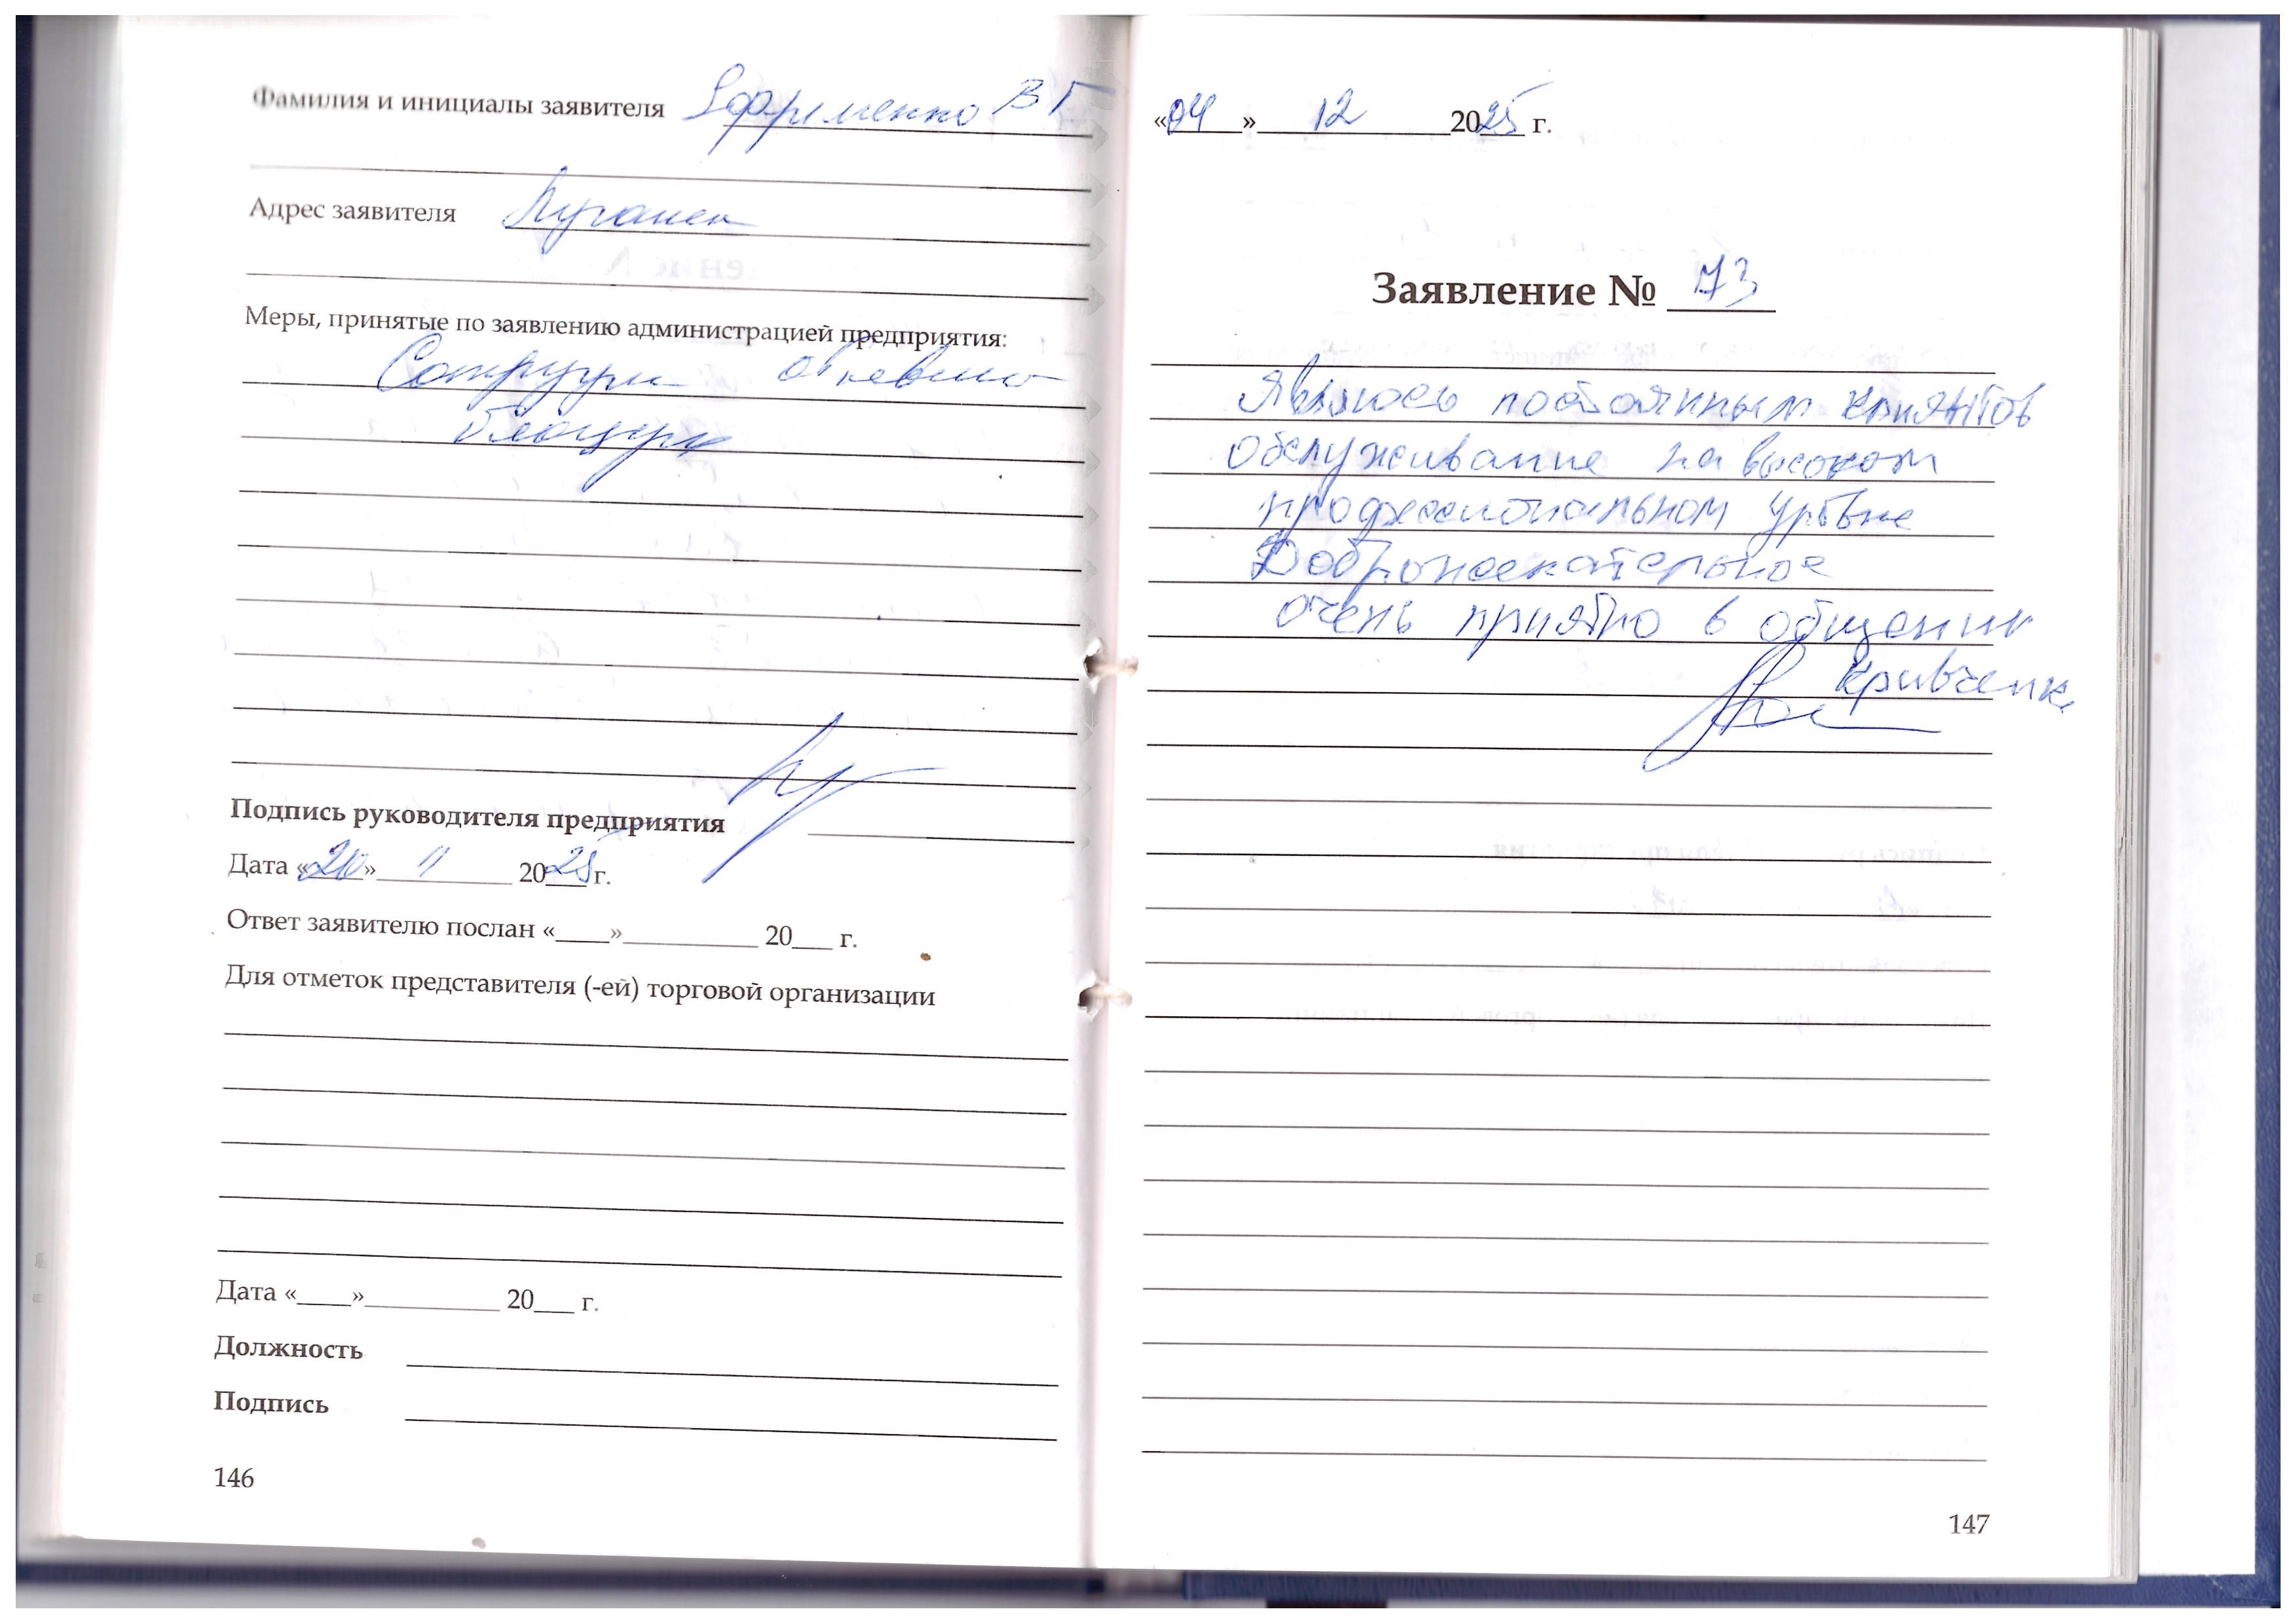 Фамилия и инициалы заявителя Ефременко В Г
Адрес заявителя Луганск
Меры, принятые по заявлению администрацией предприятия:
Подпись руководителя предприятия
Дата «20» 11 2025 г.
Ответ заявителю послан «____»__________ 20___ г.
Для отметок представителя (-ей) торговой организации
Дата «____»__________ 20___ г.
Должность
Подпись
146
«04» 12 2025 г.
Заявление № 73
Являюсь постоянным клиентов
обслуживание на высоком
профессиональном уровне
Доброжелательное
очень приятно в общении
Кривченк
147